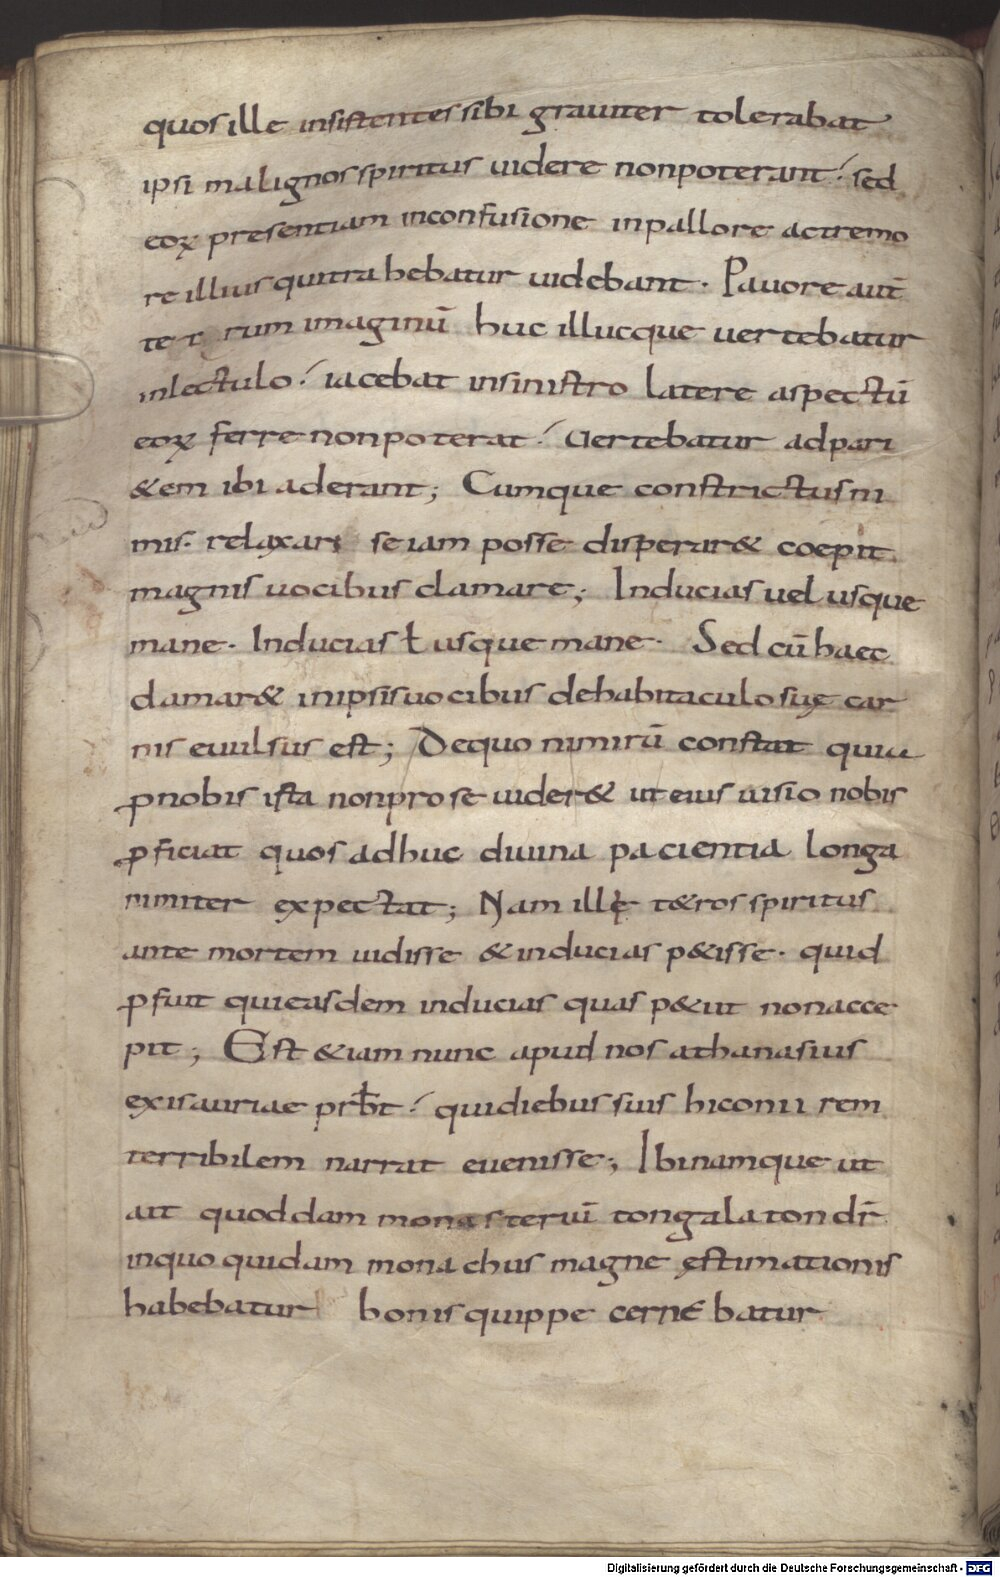 quos ille insistentes sibi grauiter tolerabat
ipsi malignos spiritus uidere non poterant; sed
eoꝝ presentiam in confusione in pallore ac tremo
re illius qui trahebatur uidebant. Pauore aut̄
te t rum imaginū huc illucque uertebatur
in lectulo; iacebat in sinistro latere aspectū
eoꝝ ferre non poterat; Uertebatur ad pari
&em ibi aderant; Cumque constrictus ni
mis. relaxari se iam posse disperar& coepit
magnis uocibus clamare; Inducias uel usque
mane. Inducias ł usque mane. Sed cū haec
clamar& in ipsis uocibus de habitaculo suę car
nis euulsus est; De quo nimirū constat quia
ꝓ nobis ista non pro se uider& ut eius uisio nobis
ꝓficiat quos adhuc diuina pacientia longa
nimiter expectat; Nam ille t&ros spiritus
ante mortem uidisse & inducias p&isse. quid
ꝓfuit qui easdem inducias quas p&iit non acce
pit; Est &iam nunc apud nos athanasius
ex isauriae prƀt; qui diebus suis hiconii rem
terribilem narrat euenisse; Ibi namque ut
ait quoddam monasteriū tongalaton dr̄
in quo quidam monachus magne ęstimationis
habebatur bonis quippe cernebatur
Digitalisierung gefördert durch die Deutsche Forschungsgemeinschaft - DFG